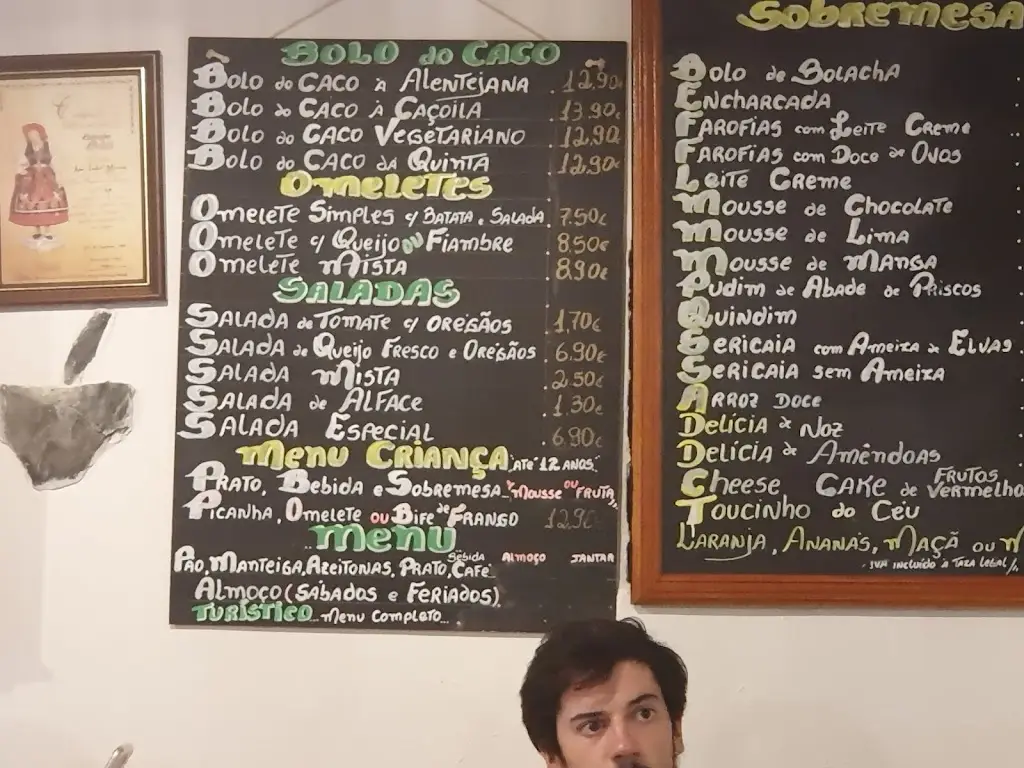 BOLO do CACO
BOLO do CACO à ALENTEJANA . 12,90€
BOLO do CACO à CAÇOILA . 13,90€
BOLO do CACO VEGETARIANO . 12,90€
BOLO do CACO da QUINTA . 12,90€
OMELETES
OMELETE SIMPLES c/ BATATA e SALADA . 7.50€
OMELETE c/ QUEIJO ou FIAMBRE . 8,50€
OMELETE MISTA . 8,90€
SALADAS
SALADA de TOMATE c/ OREGÃOS . 1,70€
SALADA de QUEIJO FRESCO e OREGÃOS . 6.90€
SALADA MISTA . 2.50€
SALADA de ALFACE . 1,30€
SALADA ESPECIAL . 6,90€
MENU CRIANÇA ATÉ 12 ANOS.
PRATO, BEBIDA e SOBREMESA Mousse ou FRUTA
PICANHA, OMELETE ou BIFE de FRANGO 12,90
MENU
BEBIDA ALMOÇO JANTAR
PÃO, MANTEIGA, AZEITONAS, PRATO, CAFÉ
ALMOÇO (SÁBADOS e FERIADOS)
TURÍSTICO... MENU COMPLETO...
SOBREMESA
BOLO de BOLACHA
ENCHARCADA
FAROFIAS com LEITE CREME
FAROFIAS com DOCE de OVOS
LEITE CREME
MOUSSE de CHOCOLATE
MOUSSE de LIMA
MOUSSE de MANGA
PUDIM de ABADE de PRISCOS
QUINDIM
SERICAIA com AMEIXA de ELVAS
SERICAIA sem AMEIXA
ARROZ DOCE
DELÍCIA de NOZ
DELÍCIA de AMÊNDOAS
CHEESE CAKE de FRUTOS VERMELHO
TOUCINHO do CÉU
LARANJA, ANANÁS, MAÇÃ ou M
. IVA INCLUÍDO À TAXA LEGAL